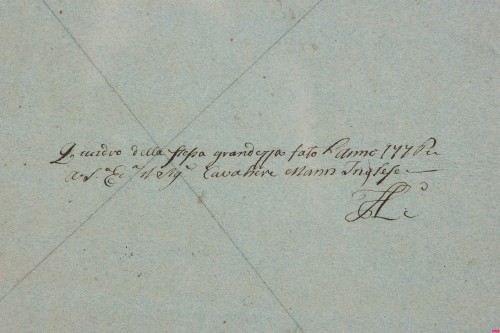 Quadro della stessa grandezza fato l'anno 1776 Per
a S. Ec.ª il Sig.ʳ Cavaliere Mann Inglese